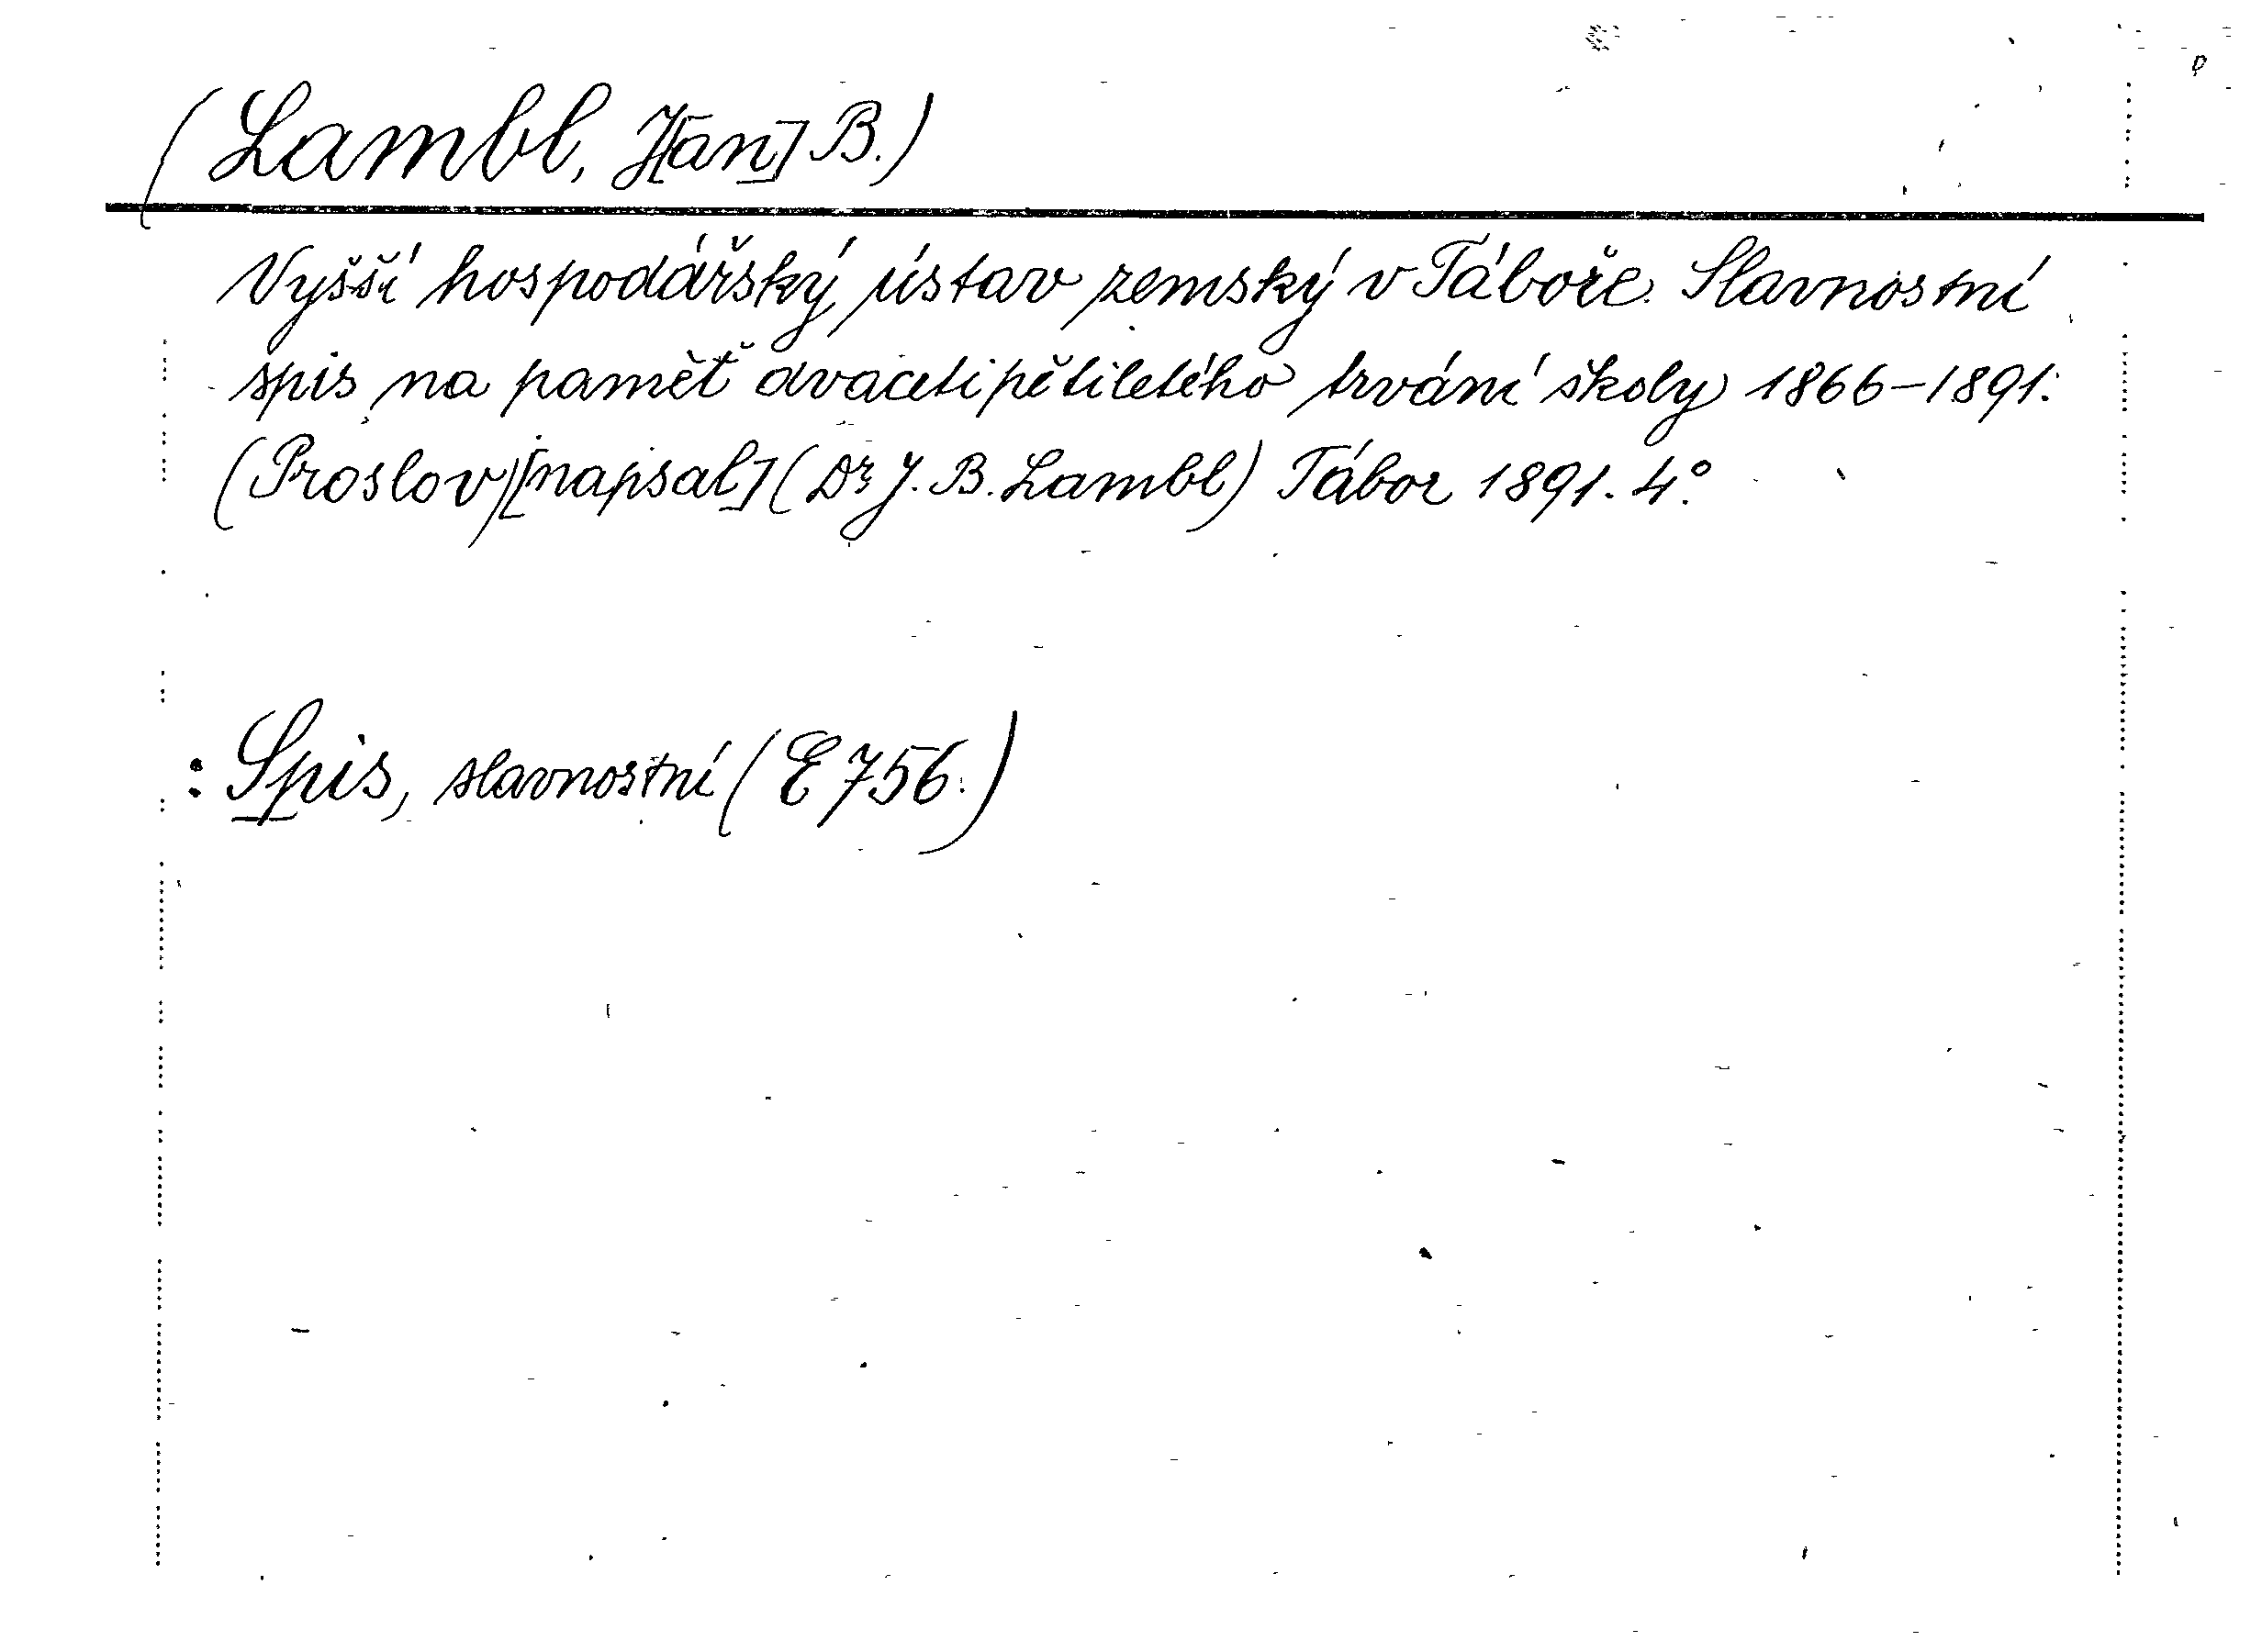 (Lambl, J[an] B.)
Vyšší hospodářský ústav zemský v Táboře. Slavnostní
spis na paměť dvacetipětiletého trvání školy 1866-1891.
(Proslov) [napsal] (Dr J. B. Lambl) Tábor 1891. 4°.
: Spis, slavnostní (E 756.)